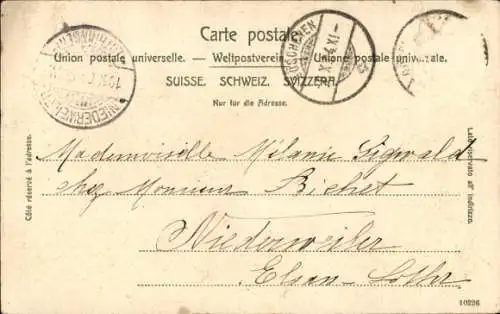 Carte postale.
Union postale universelle. — Weltpostverein. — Unione postale universale.
SUISSE. SCHWEIZ. SVIZZERA.
Nur für die Adresse.
GÖSCHENEN
NIEDERWEILER
Côté réservé à l'adresse.
Lato riservato all' indirizzo.
Mademoiselle Mélanie Sigwald
chez Monsieur Bichet
Niederweiler
Elsass-Lothr
10226